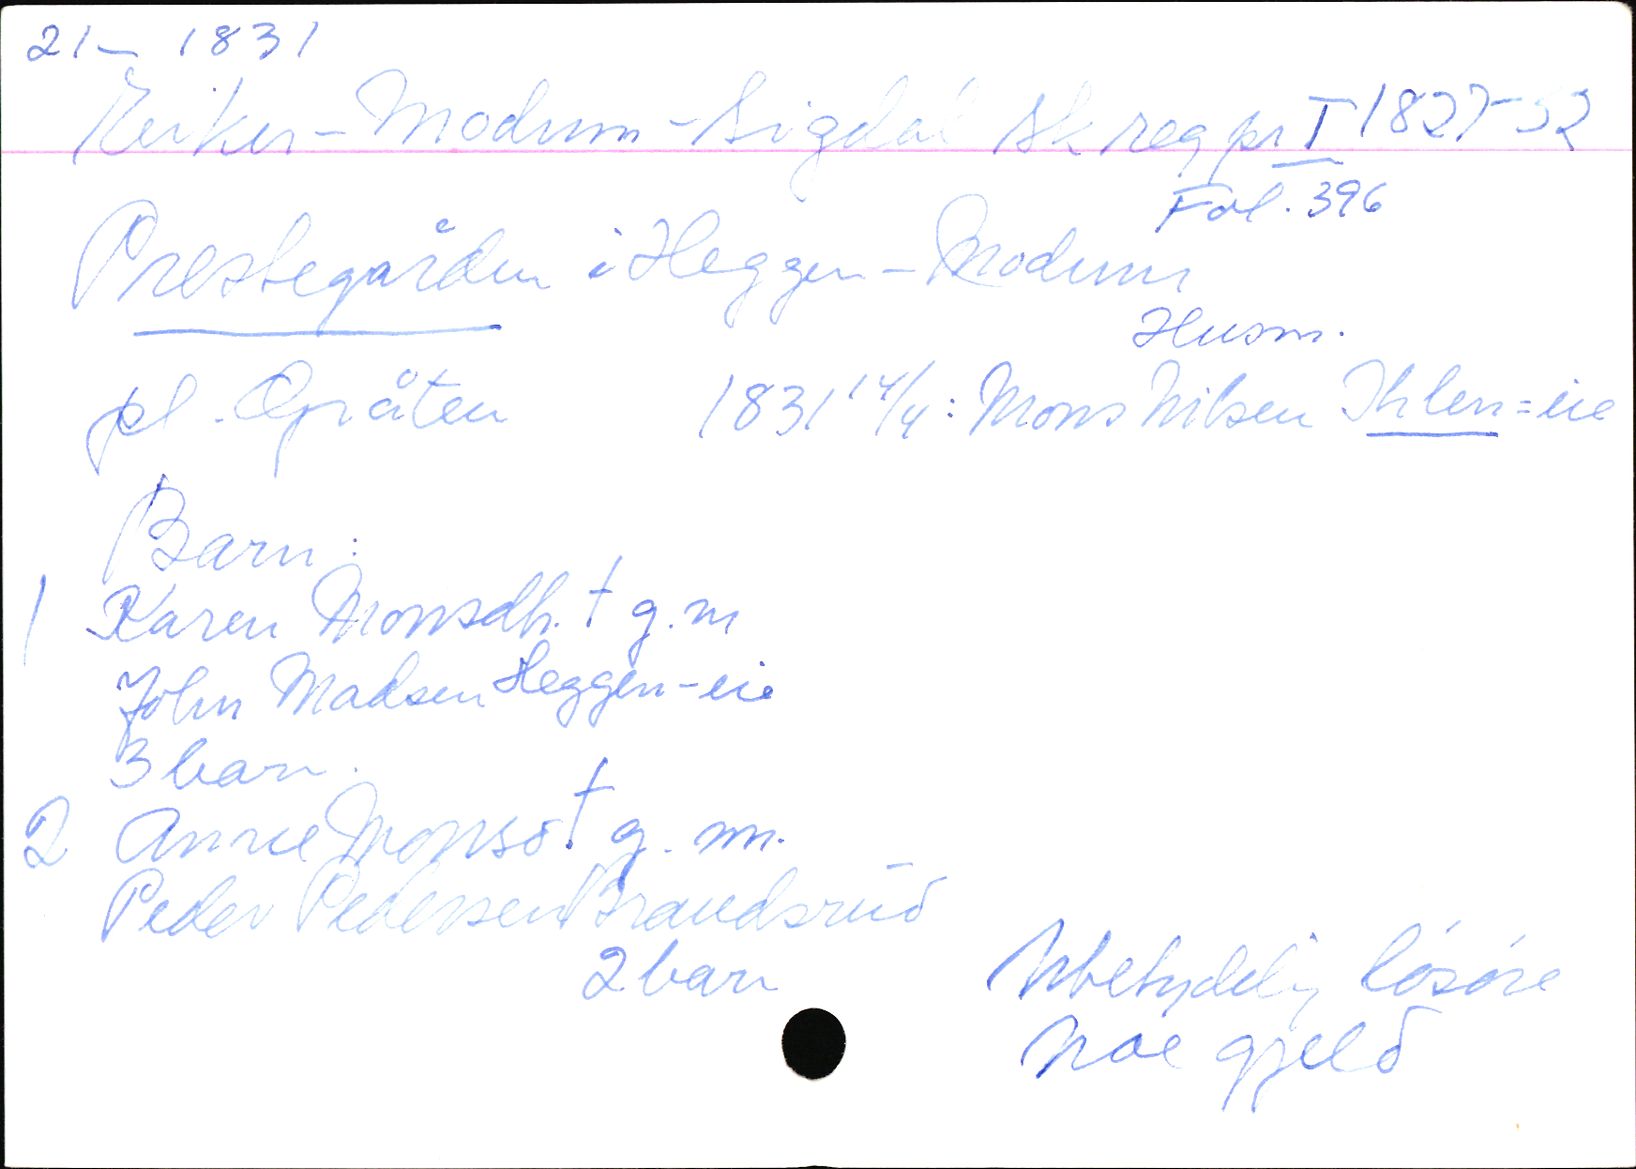 21- 1831
Eiker-Modum-Sigdal sk reg pr I 1827-32
Fol. 396
Prestegården i Heggen-Modum
Husm.
pl. Opsåten 1831 14/4: Mons Nilsen Ihlen=eie
Barn:
1 Karen Monsdtr. † g.m
John Madsen Heggen-eie
3 barn.
2 Anne Monsd † g.m.
Peder Pedersen Brandsrud
2 barn
Ubetydelig løsøre
Noe gjeld